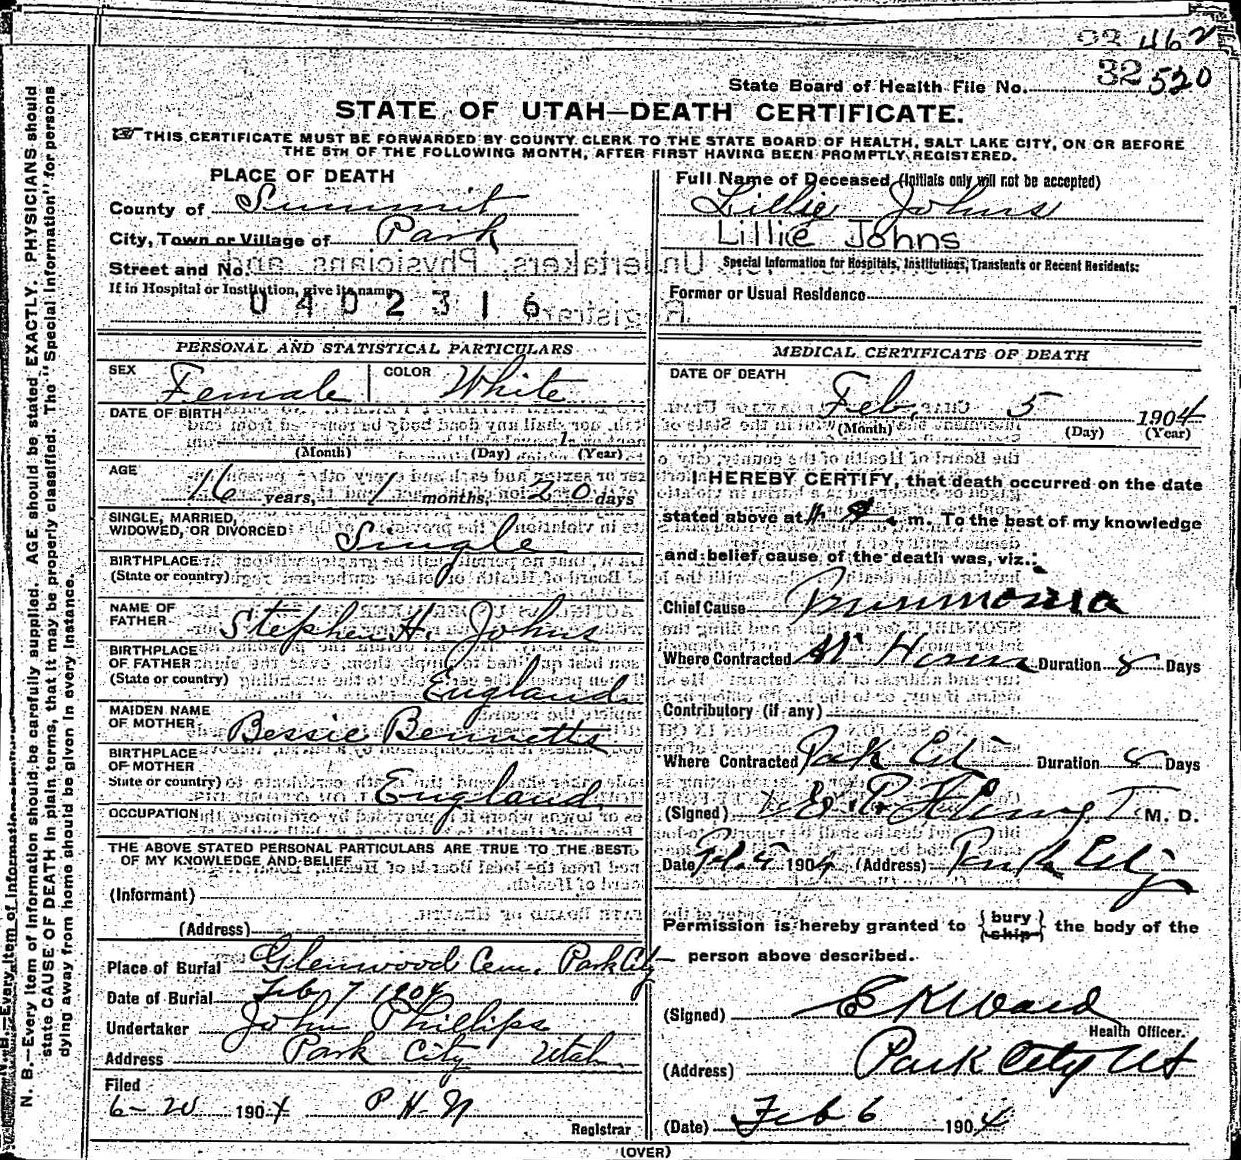 462
32 520
State Board of Health File No.
STATE OF UTAH—DEATH CERTIFICATE.
THIS CERTIFICATE MUST BE FORWARDED BY COUNTY CLERK TO THE STATE BOARD OF HEALTH, SALT LAKE CITY, ON OR BEFORE
THE 5TH OF THE FOLLOWING MONTH, AFTER FIRST HAVING BEEN PROMPTLY REGISTERED.
PLACE OF DEATH
County of Summit
City, Town or Village of Park
Street and No.
If in Hospital or Institution, give its name
0402316
Full Name of Deceased (Initials only will not be accepted)
Lillie Johns
Lillie Johns
Special Information for Hospitals, Institutions, Transients or Recent Residents:
Former or Usual Residence
PERSONAL AND STATISTICAL PARTICULARS
SEX Female COLOR White
DATE OF BIRTH
1
(Month) (Day) (Year)
AGE 16 years, 1 months, 20 days
SINGLE, MARRIED,
WIDOWED, OR DIVORCED Single
BIRTHPLACE
(State or country)
NAME OF
FATHER Stephen H. Johns
BIRTHPLACE
OF FATHER
(State or country) England
MAIDEN NAME
OF MOTHER Bessie Bennetts
BIRTHPLACE
OF MOTHER
State or country) England
OCCUPATION
THE ABOVE STATED PERSONAL PARTICULARS ARE TRUE TO THE BEST
OF MY KNOWLEDGE AND BELIEF
(Informant)
(Address)
Place of Burial Glenwood Cem. Park City
Date of Burial Feb 7 1904
Undertaker John Phillips
Address Park City Utah
Filed
6-20 1904 P.H.N
Registrar
MEDICAL CERTIFICATE OF DEATH
DATE OF DEATH
Feb. 5 1904
(Month) (Day) (Year)
I HEREBY CERTIFY, that death occurred on the date
stated above at m. To the best of my knowledge
and belief cause of the death was, viz.:
Chief Cause Pneumonia
Where Contracted At Home Duration 8 Days
Contributory (if any)
Where Contracted Park City Duration 8 Days
(Signed) M. D.
Date Feb. 5 1904 (Address) Park City
Permission is hereby granted to {bury ship} the body of the
person above described.
(Signed) E K Ward
Health Officer.
(Address) Park City Ut
(Date) Feb 6 1904
(OVER)
N. B.—Every item of information should be carefully supplied. AGE should be stated EXACTLY. PHYSICIANS should
state CAUSE OF DEATH in plain terms, that it may be properly classified. The "Special Information" for persons
dying away from home should be given in every instance.